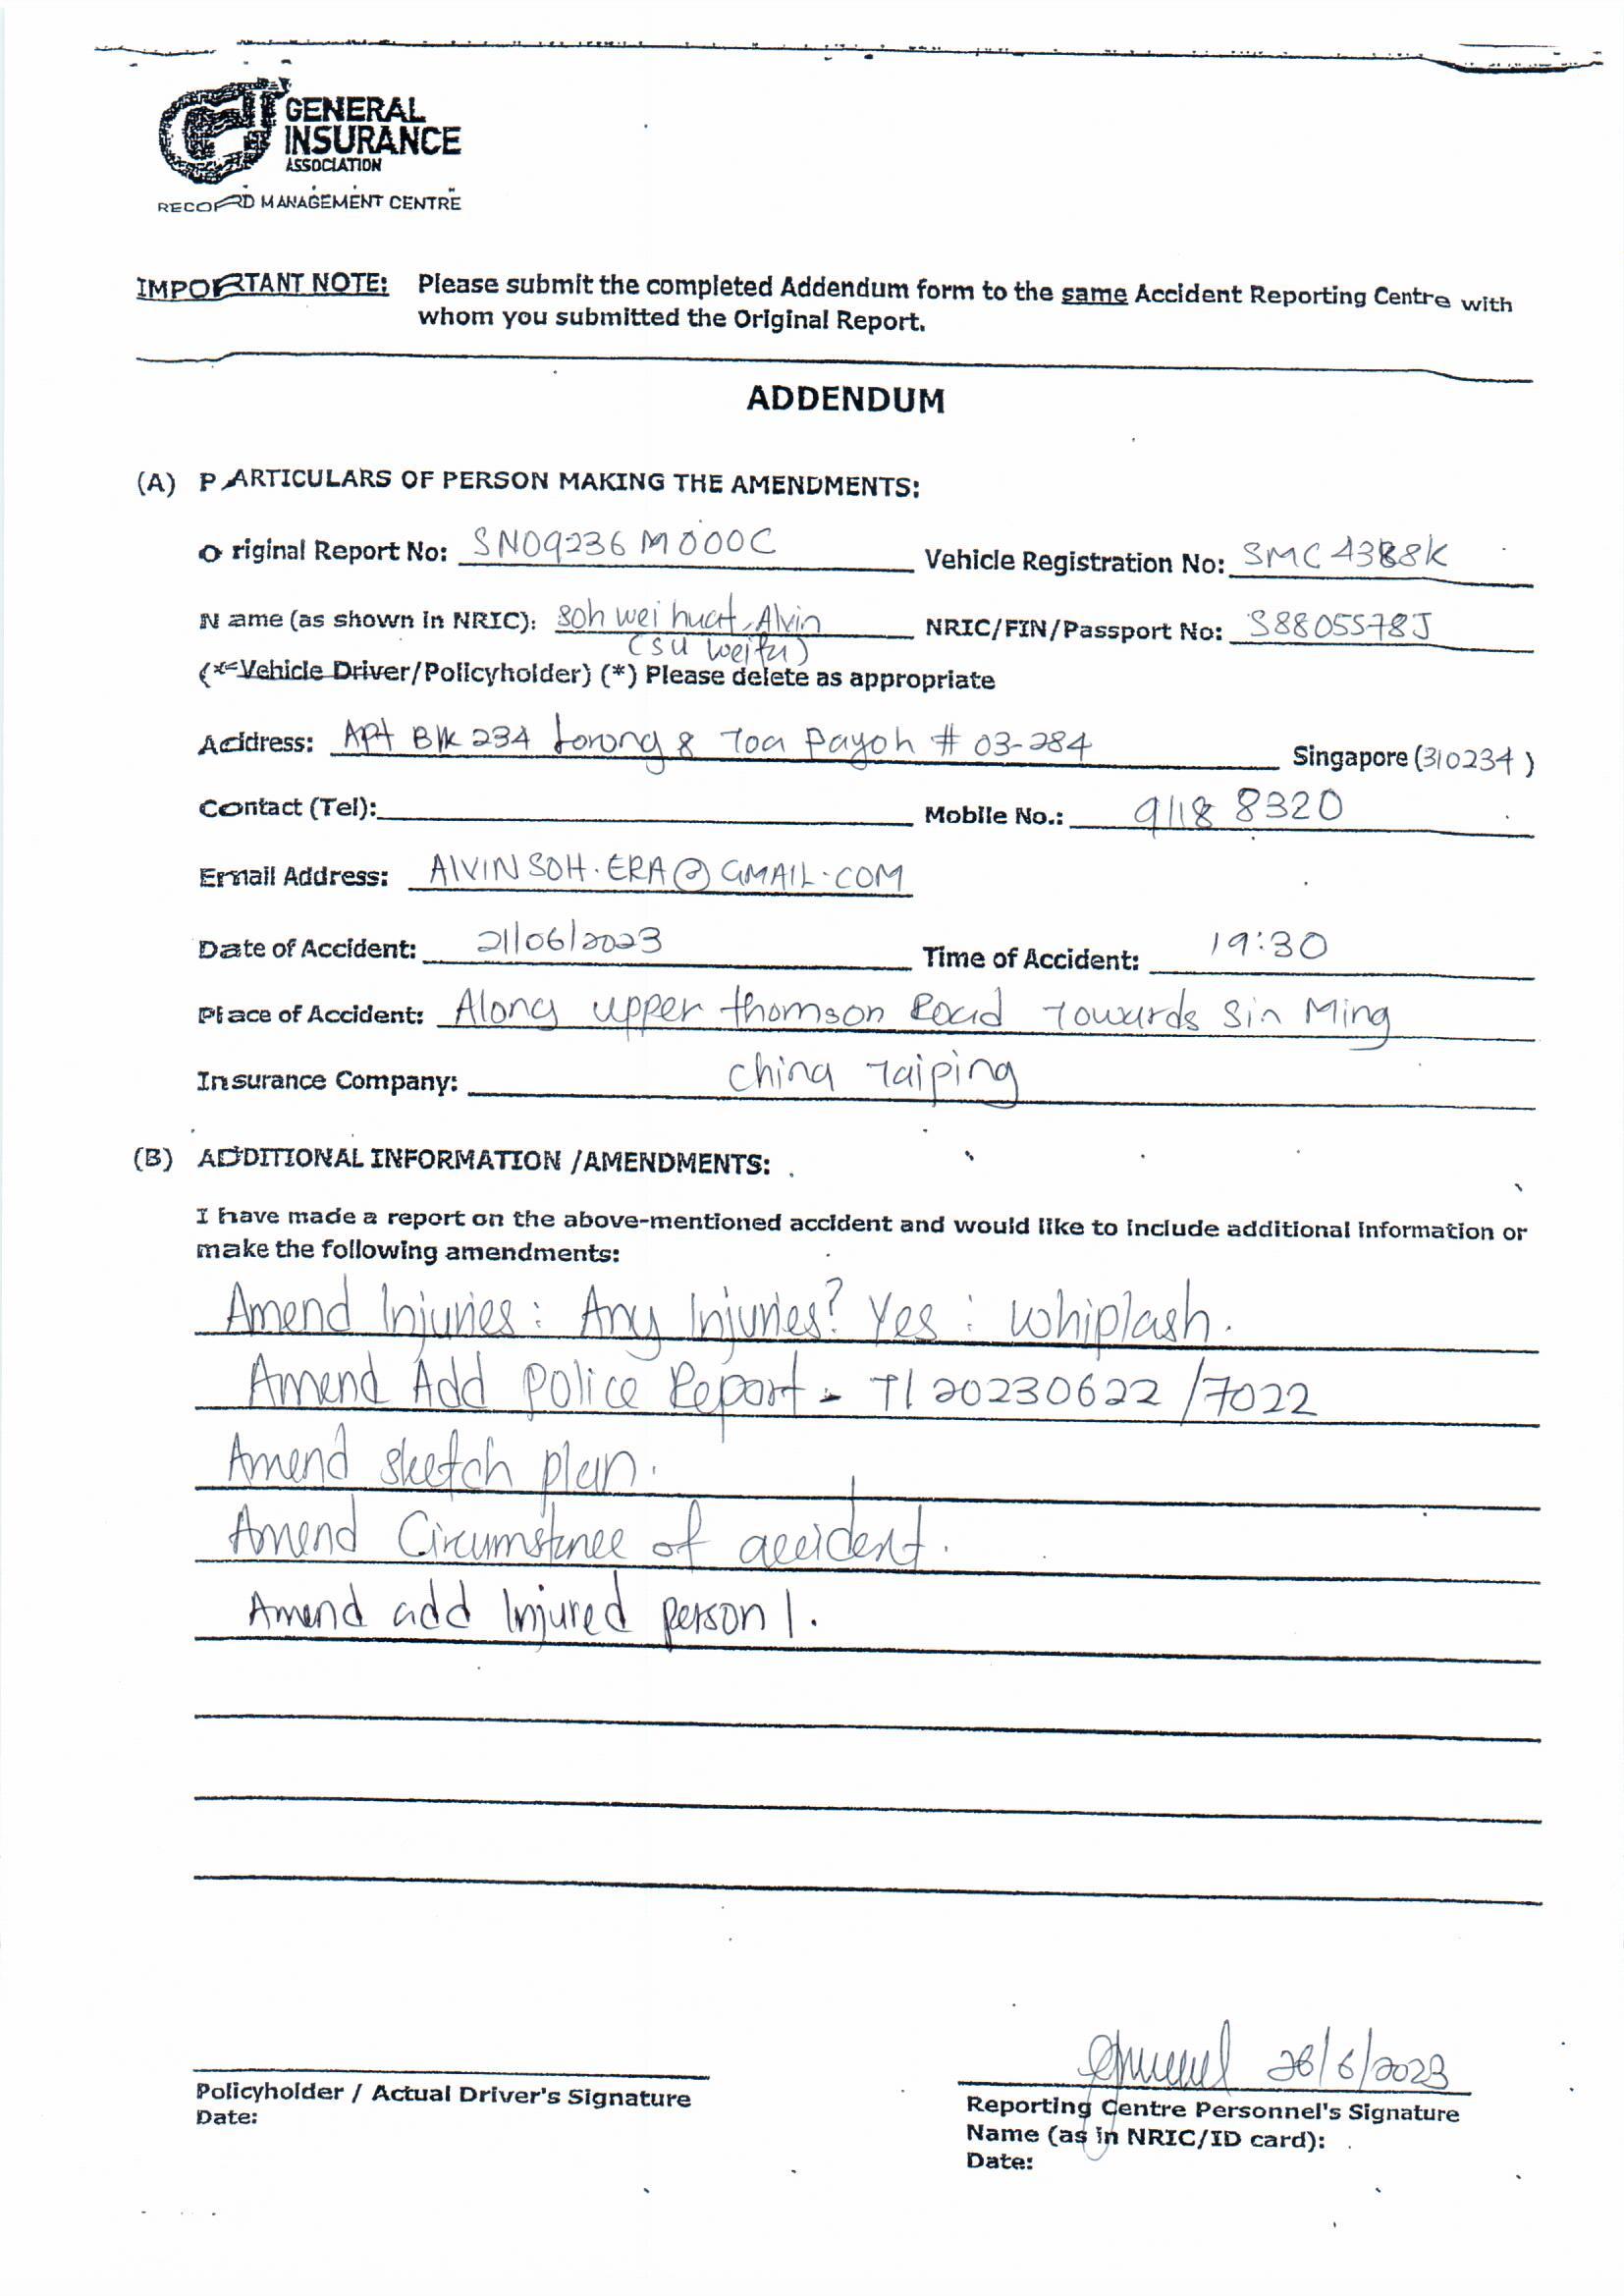 GENERAL
INSURANCE
ASSOCIATION
RECORD MANAGEMENT CENTRE
IMPORTANT NOTE: Please submit the completed Addendum form to the same Accident Reporting Centre with
whom you submitted the Original Report.
ADDENDUM
(A) PARTICULARS OF PERSON MAKING THE AMENDMENTS:
Original Report No: SN09236M000C Vehicle Registration No: SMC4388K
Name (as shown in NRIC): Soh wei huat, Alvin NRIC/FIN/Passport No: S8805578J
(Su Weifu)
(*Vehicle Driver/Policyholder) (*) Please delete as appropriate
Address: Apt Blk 234 Lorong 8 Toa Payoh # 03-284 Singapore (310234)
Contact (Tel): Mobile No.: 9118 8320
Email Address: AlVINSOH.ERA@GMAIL.COM
Date of Accident: 21/06/2023 Time of Accident: 19:30
Place of Accident: Along upper thomson Road Towards Sin Ming
Insurance Company: China Taiping
(B) ADDITIONAL INFORMATION /AMENDMENTS:
I have made a report on the above-mentioned accident and would like to include additional information or
make the following amendments:
Amend Injuries : Any Injuries? Yes : Whiplash.
Amend Add Police Report - T/20230622/7022
Amend sketch plan.
Amend Circumstance of accident.
Amend add Injured person 1.
26/6/2023
Policyholder / Actual Driver's Signature
Date:
Reporting Centre Personnel's Signature
Name (as in NRIC/ID card):
Date: